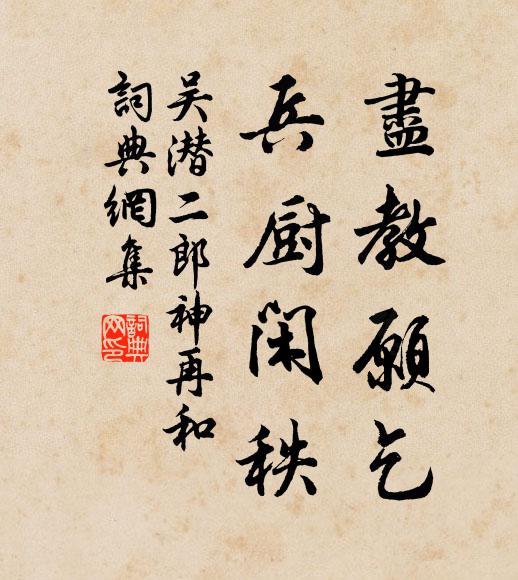 盡教願乞
兵厨閑秩
吴潛二郎神再和
詞典網集
詞典網印